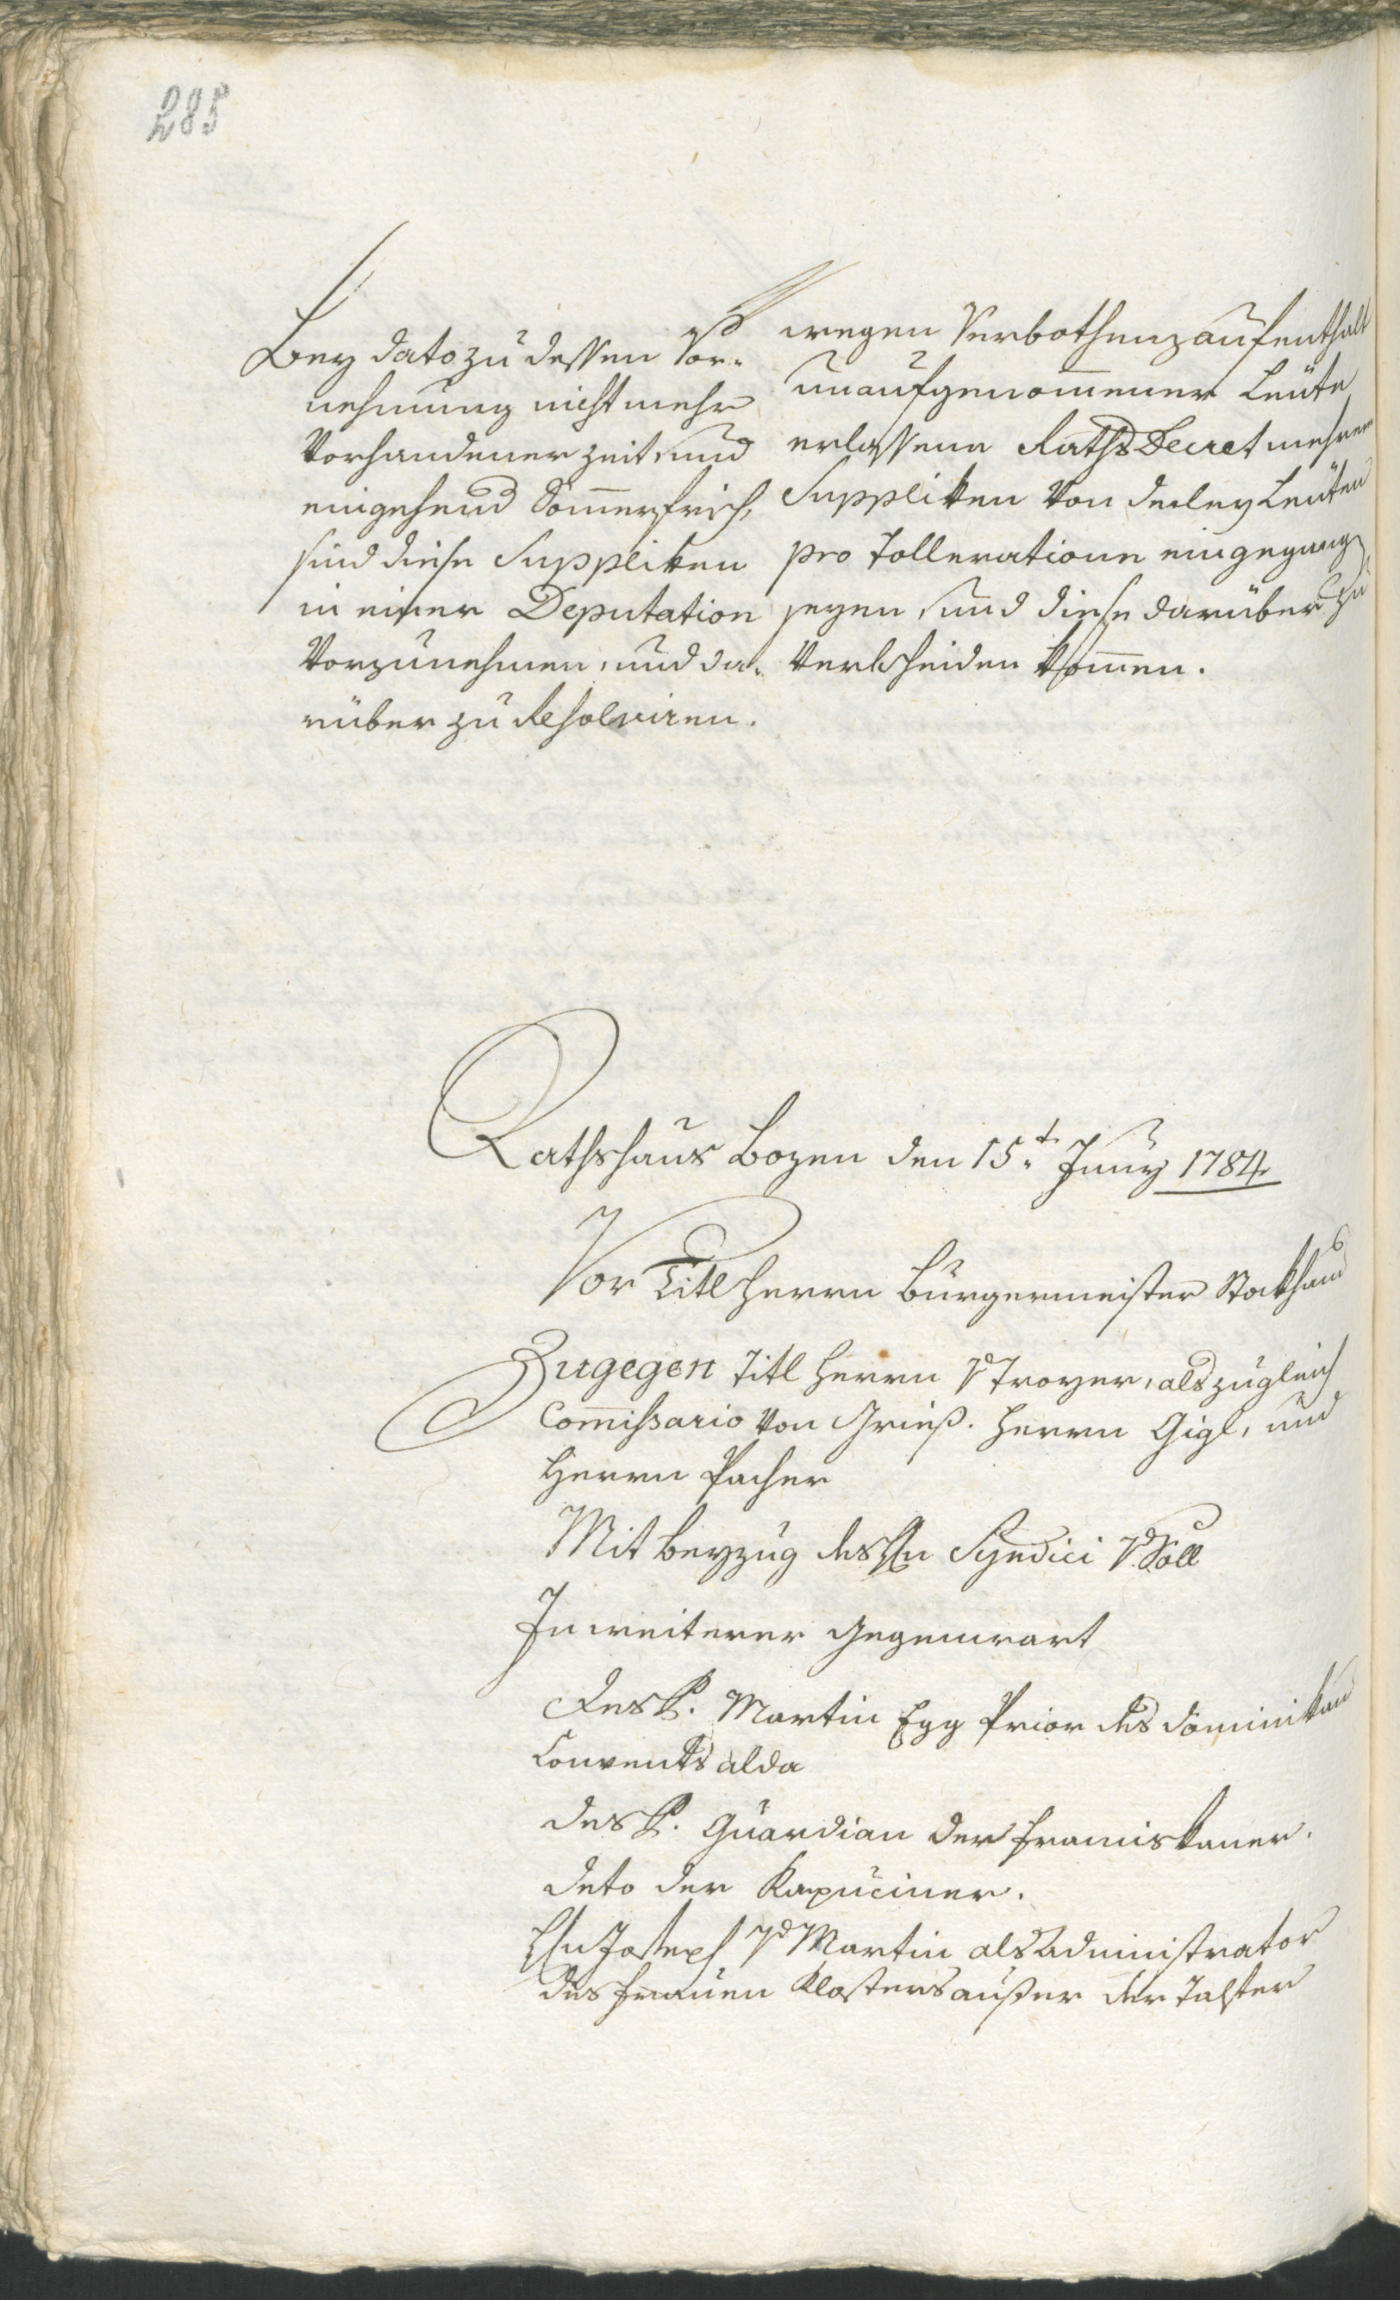 285
Bey dato zu dessen Vor-
nehmung nicht mehr
Vorhandener zeit, und
eingehend Sommerfrisch,
sind diese Suppliken
in einer Deputation
Vorzunehmen, und da-
rüber zu Resolviren.
wegen Verbothenzaufenthalt
unaufgenommener Leüte
erlassene Raths Decret mehrere
Suppliken Von derley Leüten
pro Tolleratione eingegang
seyen, und diese darüber zu
Verbscheiden kommen.
Rathshaus Bozen den 15.t Juny 1784
Vor Titl Herrn Bürgermeister Stockhaus
Zugegen Titl Herrn V Troyer, als zugleich
Commissario Von Grieß. Herrn Gigl, und
Herrn Pacher
Mit beyzug des Hn Syndici V Söll
In weiterer Gegenwart
des P. Martin Egg Prior des Dominikan
Convents alda
des P. Guardian der Franciskaner.
deto der Kapuciner.
Hn Joseph V Martin als Administrator
des Frauen Klosters ausser der Talfer